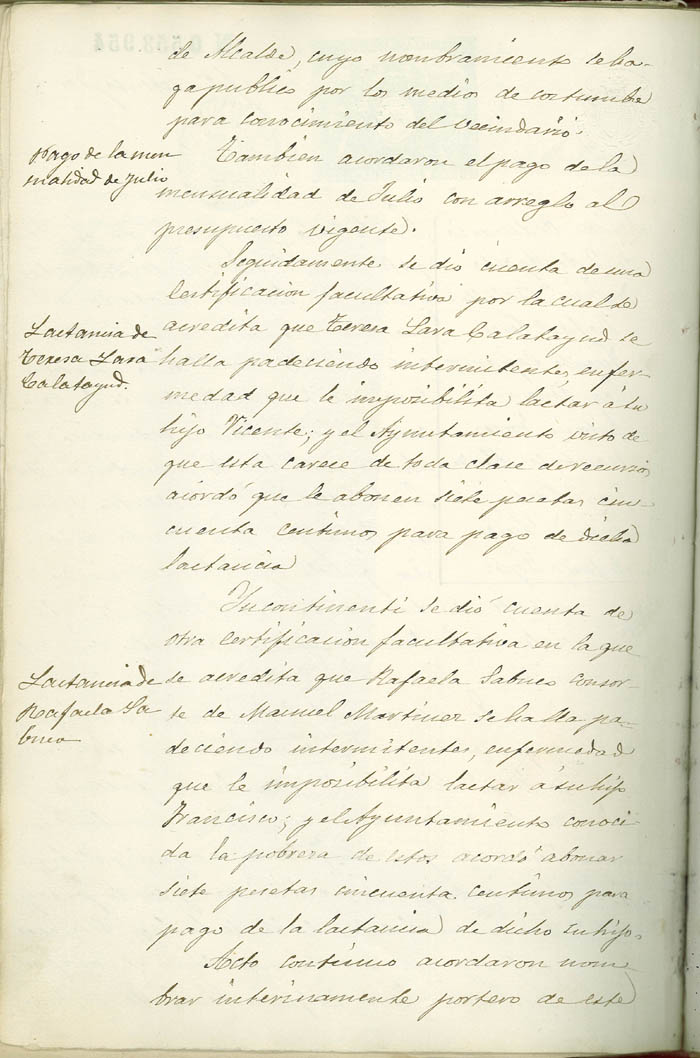 de Alcalde, cuyo nombramiento se ha-
ga publico por los medios de costumbre
para conocimiento del Vecindario.
Pago de la men
sualidad de Julio
Tambien acordaron el pago de la
mensualidad de Julio con arreglo al
presupuesto vigente.
Seguidamente se dió cuenta de una
Certificacion facultativa por la cual se
Lactancia de
Teresa Lara
Calatayud.
acredita que Teresa Lara Calatayud se
halla padeciendo intermitentes, enfer-
medad que le imposibilita lactar á su
hijo Vicente; y el Ayuntamiento visto de
que esta carece de toda clase de recursos
acordó que le abonen siete pesetas cin-
cuenta centimos para pago de dicha
lactancia
Incontinenti se dió cuenta de
otra certificacion facultativa en la que
Lactancia de
Rafaela Sa
buco
se acredita que Rafaela Sabuco consor-
te de Manuel Martinez se halla pa-
deciendo intermitentes, enfermedad
que le imposibilita lactar á su hijo
Francisco; y el Ayuntamiento conoci-
da la pobreza de estos acordó abonar
siete pesetas cincuenta centimos para
pago de la lactancia de dicho su hijo.
Acto continuo acordaron nom-
brar interinamente portero de este